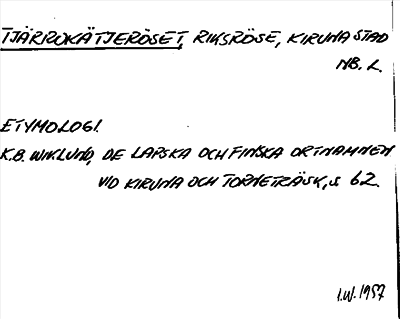 TJÄRROKÄTJERÖSET, RIKSRÖSE, KIRUNA STAD
NB. L.
ETYMOLOGI.
K.B. WIKLUND, DE LAPSKA OCH FINSKA ORTNAMNEN
VID KIRUNA OCH TORNETRÄSK, S 62.
I.W. 1957